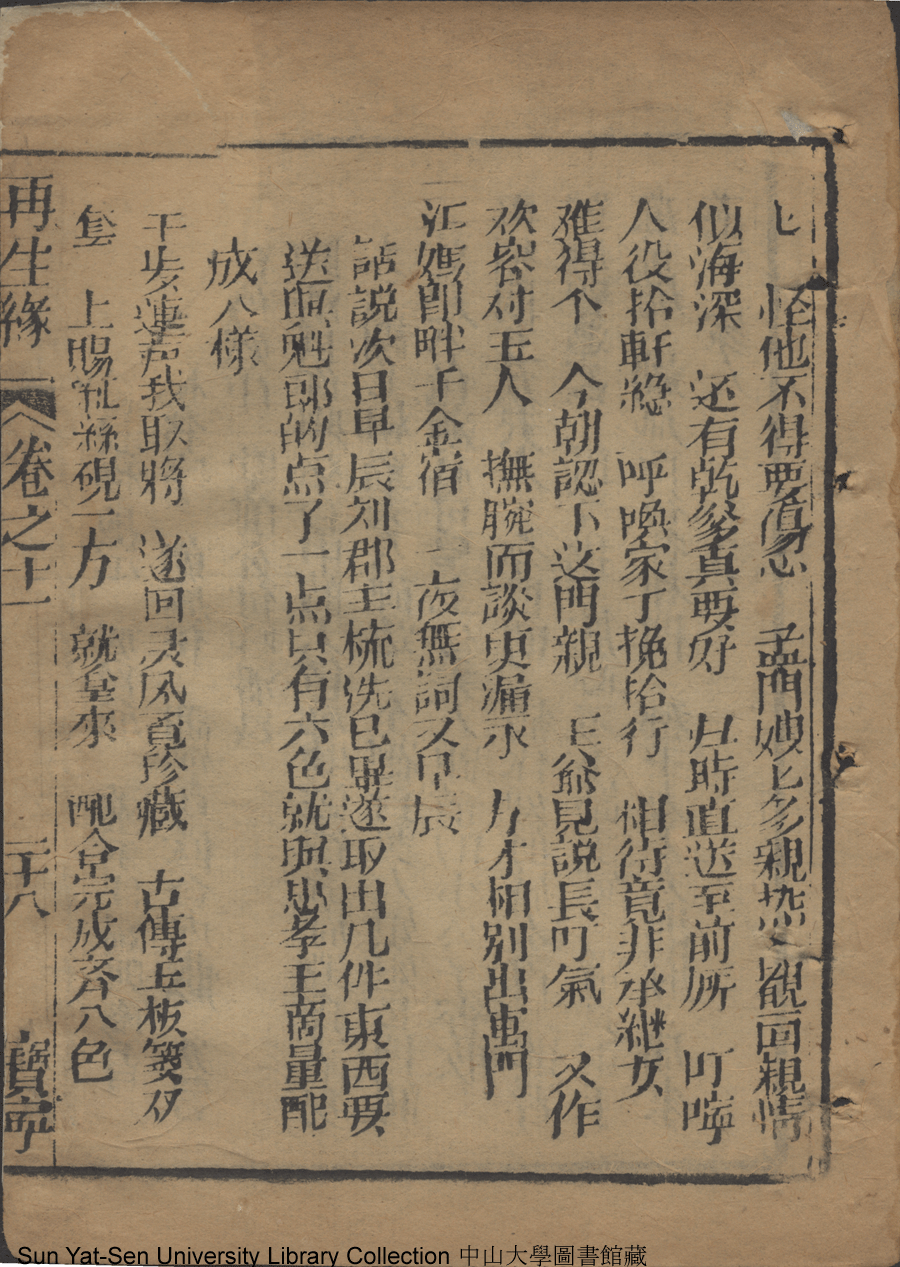 匕　怪他不得要傷悲　孟門嫂匕多親热　覩面親情
似海深　还有乾爹真要好　归時直送至前厛　叮嚀
人役抬軒穏　呼喚家丁挽抬行　相待竟非承継女
难得个　今朝認下这門親　王爺見說長吁氣　又作
欢容对玉人　撫腕而談更漏永　方才相别出東門
江媽即畔千金宿　一夜無詞又早辰
話說次日早辰刘郡主梳洗已畢遂取出几件東西要
送與魁郎的点了一点只有六色就與忠孝王商量配
成八様
干步蓮声我取將　遂回灵凤覔珍藏　古傳玉板箋分
套　上賜紅絲硯一方　就拿來　配合完成齐八色
再生緣　卷之十一　二十八　寶寧
Sun Yat-Sen University Library Collection 中山大學圖書館藏